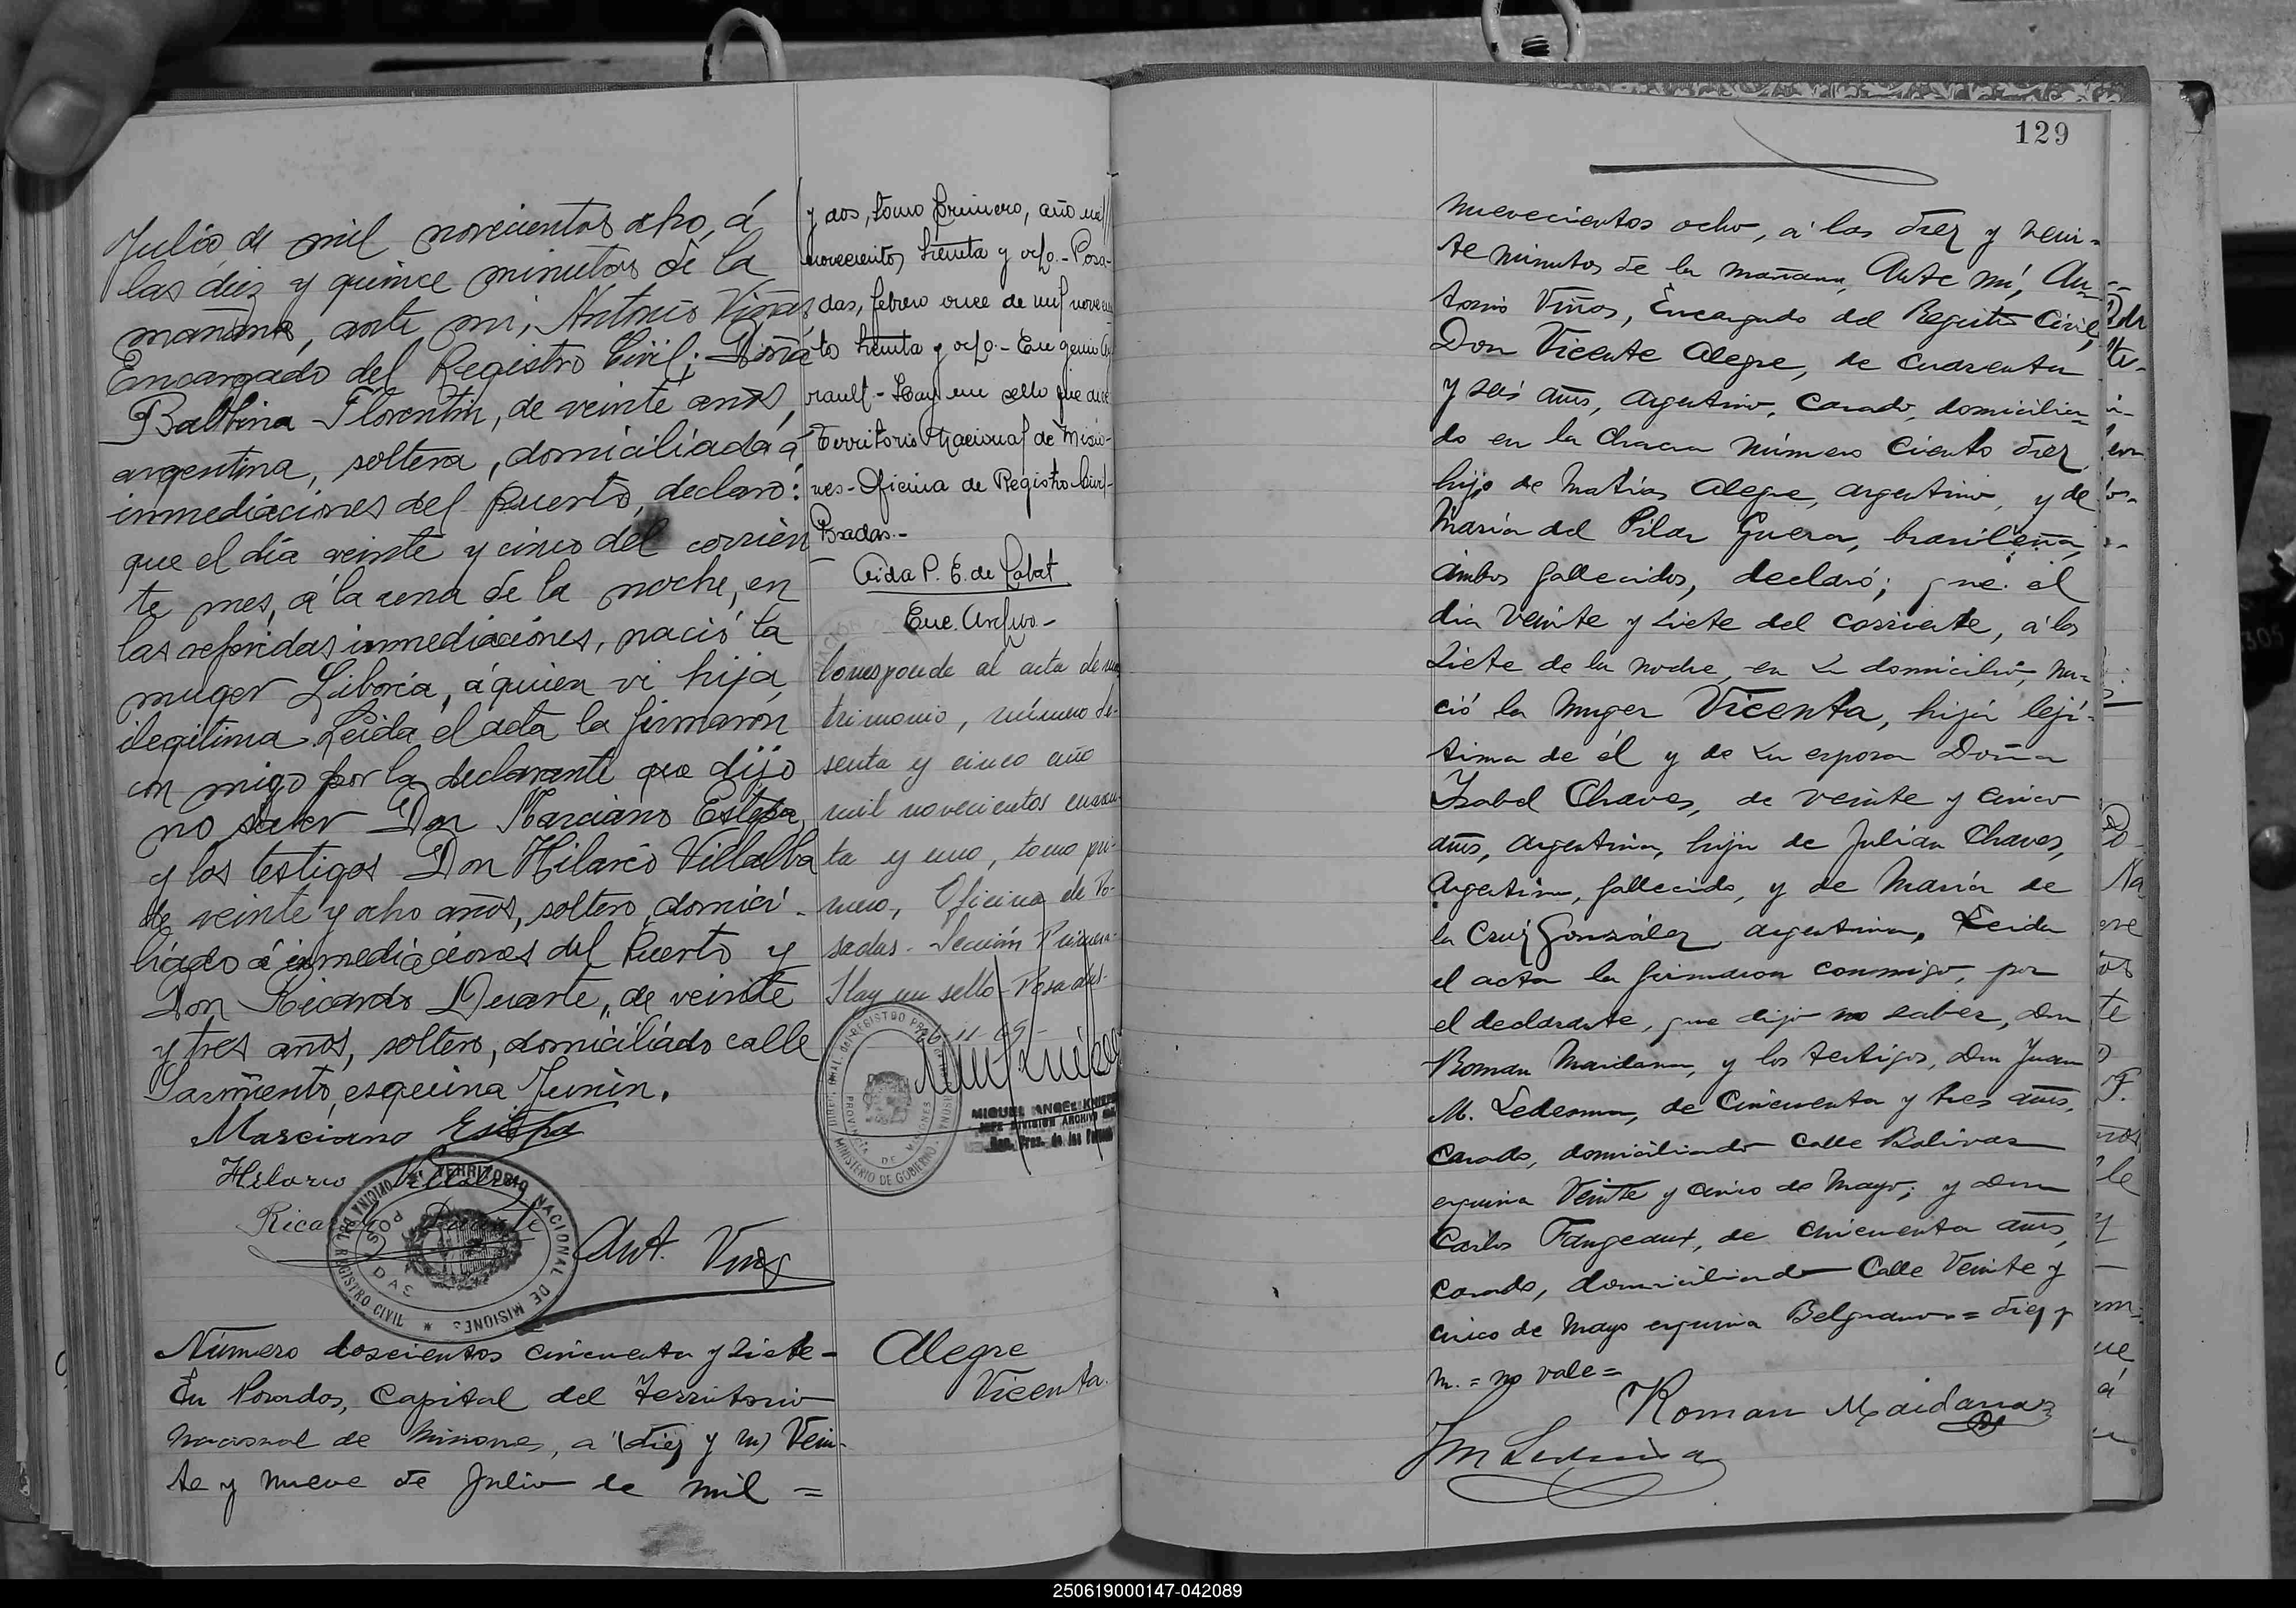 Julio, de mil novecientos ocho, á
las diez y quince minutos de la
mañana, ante mi, Antonio Viñas
Encargado del Registro Civil; Doña
Balbina Florentin, de veinte años,
argentina, soltera, domiciliada á
inmediaciones del Puerto, declaró:
que el dia veinte y cinco del corrien
te mes, á la una de la noche, en
las referidas inmediaciones, nació la
muger Liboria, á quien vi hija
ilegitima. Leida el acta la firmaron
con migo por la declarante que dijo
no saber Don Marciano Estepa,
y los testigos Don Hilario Villalba
de veinte y ocho años, soltero, domici-
liado á inmediaciones del Puerto y
Don Ricardo Duarte, de veinte
y tres años, soltero, domiciliado calle
Sarmiento, esquina Junin.
Marciano Estepa
Hilario Villalba
Ricardo Duarte
Ant. Viñas
OFICINA DEL REGISTRO CIVIL * TERRITORIO NACIONAL DE MISIONES
POSADAS
Número doscientos cincuenta y siete -
En Posadas, Capital del Territorio
Nacional de Misiones, a (diez y m) Vein-
te y nueve de Julio de mil =
y dos, tomo primero, año mil
novecientos treinta y ocho.- Posa-
das, febrero once de mil novecien
to treinta y ocho.- Eugenio
rault - Hay un sello que dice
Territorio Nacional de Misio-
nes - Oficina de Registro Civil -
Posadas.-
Aida P. E. de Labat
Enc. Archivo -
Corresponde al acta de ma
trimonio, número se-
senta y cinco año
mil novecientos cuaren
ta y uno, tomo pri-
mero, Oficina de Po-
sadas - Sección Primera-
Hay un sello - Posadas-
11-69-
MINISTERIO DE GOBIERNO
PROVINCIA DE MISIONES
MIGUEL ANGEL
JEFE DIVISION ARCHIVO
Reg. Prov. de las Personas
Alegre
Vicenta.
129
nuevecientos ocho, á las diez y vein-
te minutos de la mañana, Ante mí, An-
tonio Viñas, Encargado del Registro Civil,
Don Vicente Alegre, de cuarenta
y seis años, argentino, casado, domicilia-
do en la Chacra número ciento diez
hijo de Matías Alegre, argentino, y de
María del Pilar Guera, brasileña,
ambos fallecidos, declaró; que el
dia veinte y siete del corriente, á las
siete de la noche, en su domicilio, na-
ció la muger Vicenta, hija leji-
tima de él y de su esposa Doña
Isabel Chaves, de veinte y cinco
años, argentina, hija de Julián Chaves,
Argentino, fallecido, y de María de
la Cruz González, argentina, Leida
el acta la firmaron conmigo, por
el declarante, que dijo no saber, don
Roman Maidana, y los testigos, don Juan
M. Ledesma, de cincuenta y tres años,
casado, domiciliado calle Bolivar
esquina Veinte y cinco de Mayo; y don
Carlos Fangeaux, de cincuenta años,
casado, domiciliado Calle Veinte y
cinco de Mayo esquina Belgrano = diez y
m. = no vale =
Roman Maidana
JM Ledesma
250619000147-042089